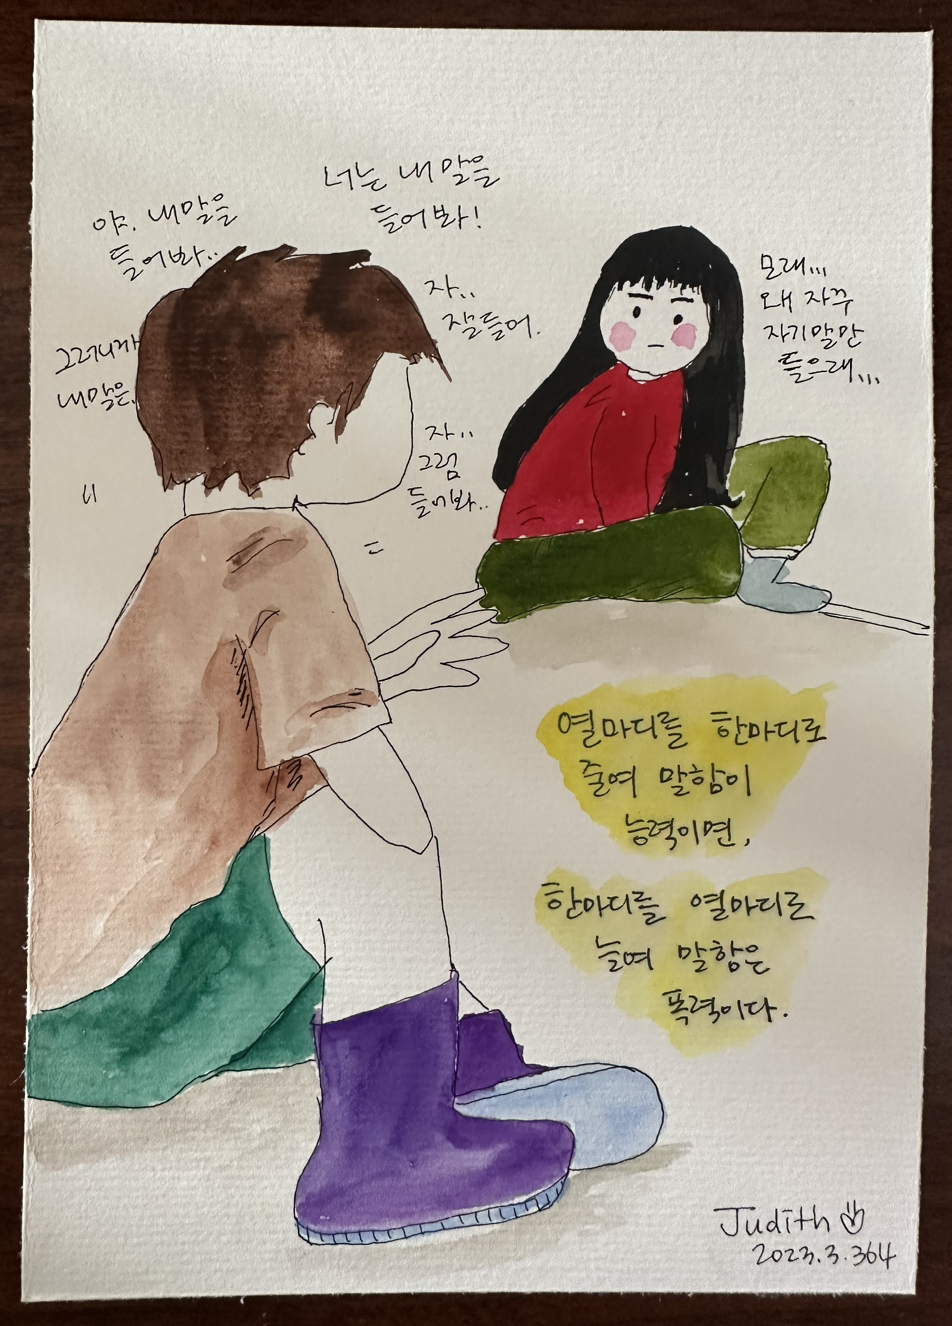 너는 내 말을
들어봐!
야. 내말을
들어봐..
자..
잘들어.
그러니까
내말은,
자..
그럼
들어봐..
모래...
왜 자꾸
자기말만
들으래...
열마디를 한마디로
줄여 말함이
능력이면,
한마디를 열마디로
늘여 말함은
폭력이다.
Judith
2023.3.364